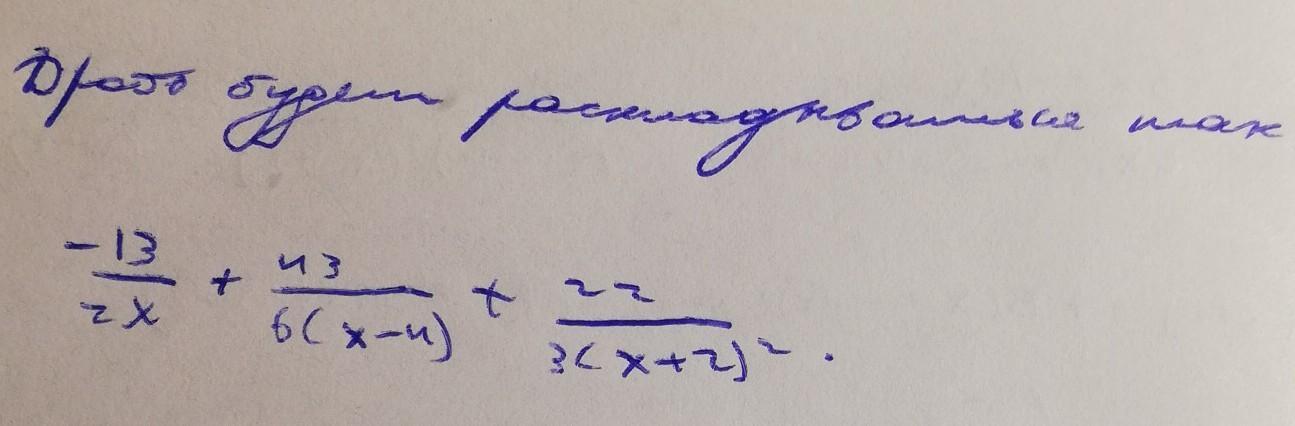 Дробь будет раскладываться так
-13/2x + 43/6(x-4) + 22/3(x+2)².